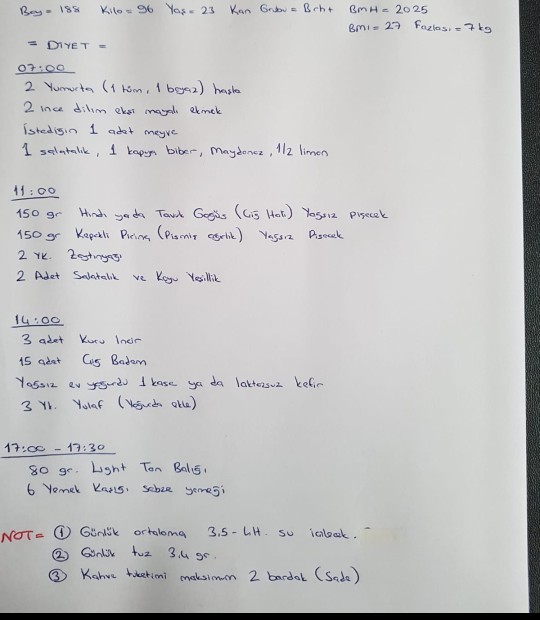 Boy = 188 Kilo = 96 Yaş = 23 Kan Grubu = B rh+ BMH = 2025
BMI = 27 Fazlası = 7 kg
= DİYET =
07:00
2 Yumurta (1 tüm, 1 beyaz) haşla
2 ince dilim ekşi mayalı ekmek
İstediğin 1 adet meyve
1 salatalık, 1 kapya biber, maydanoz, 1/2 limon
11:00
150 gr Hindi yada Tavuk Göğüs (Çiğ Hali) Yağsız Pişecek
150 gr Kepekli Pirinç (Pişmiş ağırlık) Yağsız Pişecek
2 YK. Zeytinyağı
2 Adet Salatalık ve Koyu Yeşillik
14:00
3 adet Kuru İncir
15 adet Çiğ Badem
Yağsız ev yoğurdu 1 kase ya da laktozsuz kefir
3 Yk. Yulaf (Yoğurda ekle)
17:00 - 17:30
80 gr. Light Ton Balığı
6 Yemek Kaşığı sebze yemeği
NOT = ① Günlük ortalama 3,5 - 4 lt. su içilecek.
② Günlük tuz 3,4 gr.
③ Kahve tüketimi maksimum 2 bardak (Sade)